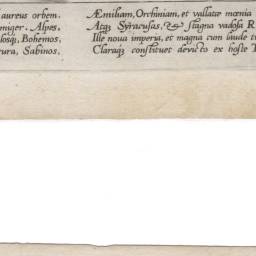 aureus orbem.
miger. Alpes.
losq, Bohemos,
ura, Sabinos.
Æmiliam, Orchiniam, et vallatæ mœnia
Atq, Syracusas, & stagna vadosa R
Ille noua imperia, et magna cum laude t
Claraq, constituet deuicto ex hoste T